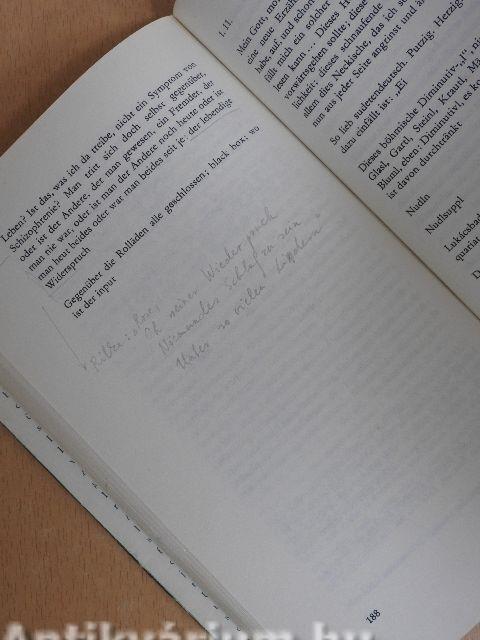 Leben? Ist das, was ich da treibe, nicht ein Symptom von
Schizophrenie? Man tritt sich doch selbst gegenüber,
oder ist der Andere, der man gewesen, ein Fremder, der
man nie war, oder ist man der Andere noch heute oder ist
man heut beides oder war man beides seit je: der lebendige
Widerspruch
Gegenüber die Rolläden alle geschlossen; black box: wo
ist der input
Rilke: Rose
Oh reiner Widerspruch
Niemandes Schlaf zu sein
Unter so vielen Lidern
188
1.11.
Mein Gott,
eine neue Erzäh
habe auf und schon
fällt sich ein solcher
lesen kann... Dieses H
vorwärtsgehen sollte; diese
lichkeit; dieses schnaufende
allem dies Neckische, das ich s
nun aus jeder Seite angrinst und
dazu einfällt ist: „Ei
So lieb sudetendeutsch. Purzig. Herzig
Dieses böhmische Diminutiv-„l",
Glasl, Gartl, Steinl, Krautl,
Bluml, eben: Diminutivl, es
ist davon durchtränkt
Nudln
Nudlsuppl
Lukácsbad
quartier
D
Antikvárium.hu